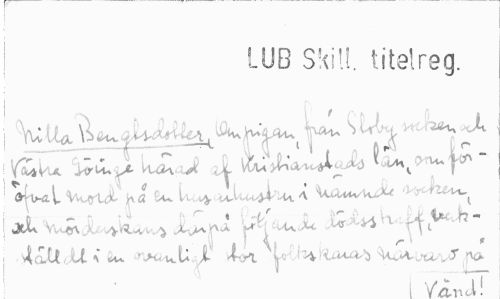 LUB Skill. titelreg.
Nilla Bengtsdotter, Om pigan, från Stoby socken och
Västra Göinge härad af Kristianstads län, som för-
öfvat mord på en husarhustru i nämnde socken,
och mörderskans derpå följande dödsstraff, verk-
ställdt i en ovanligt stor folkskaras närvaro på
Vänd!